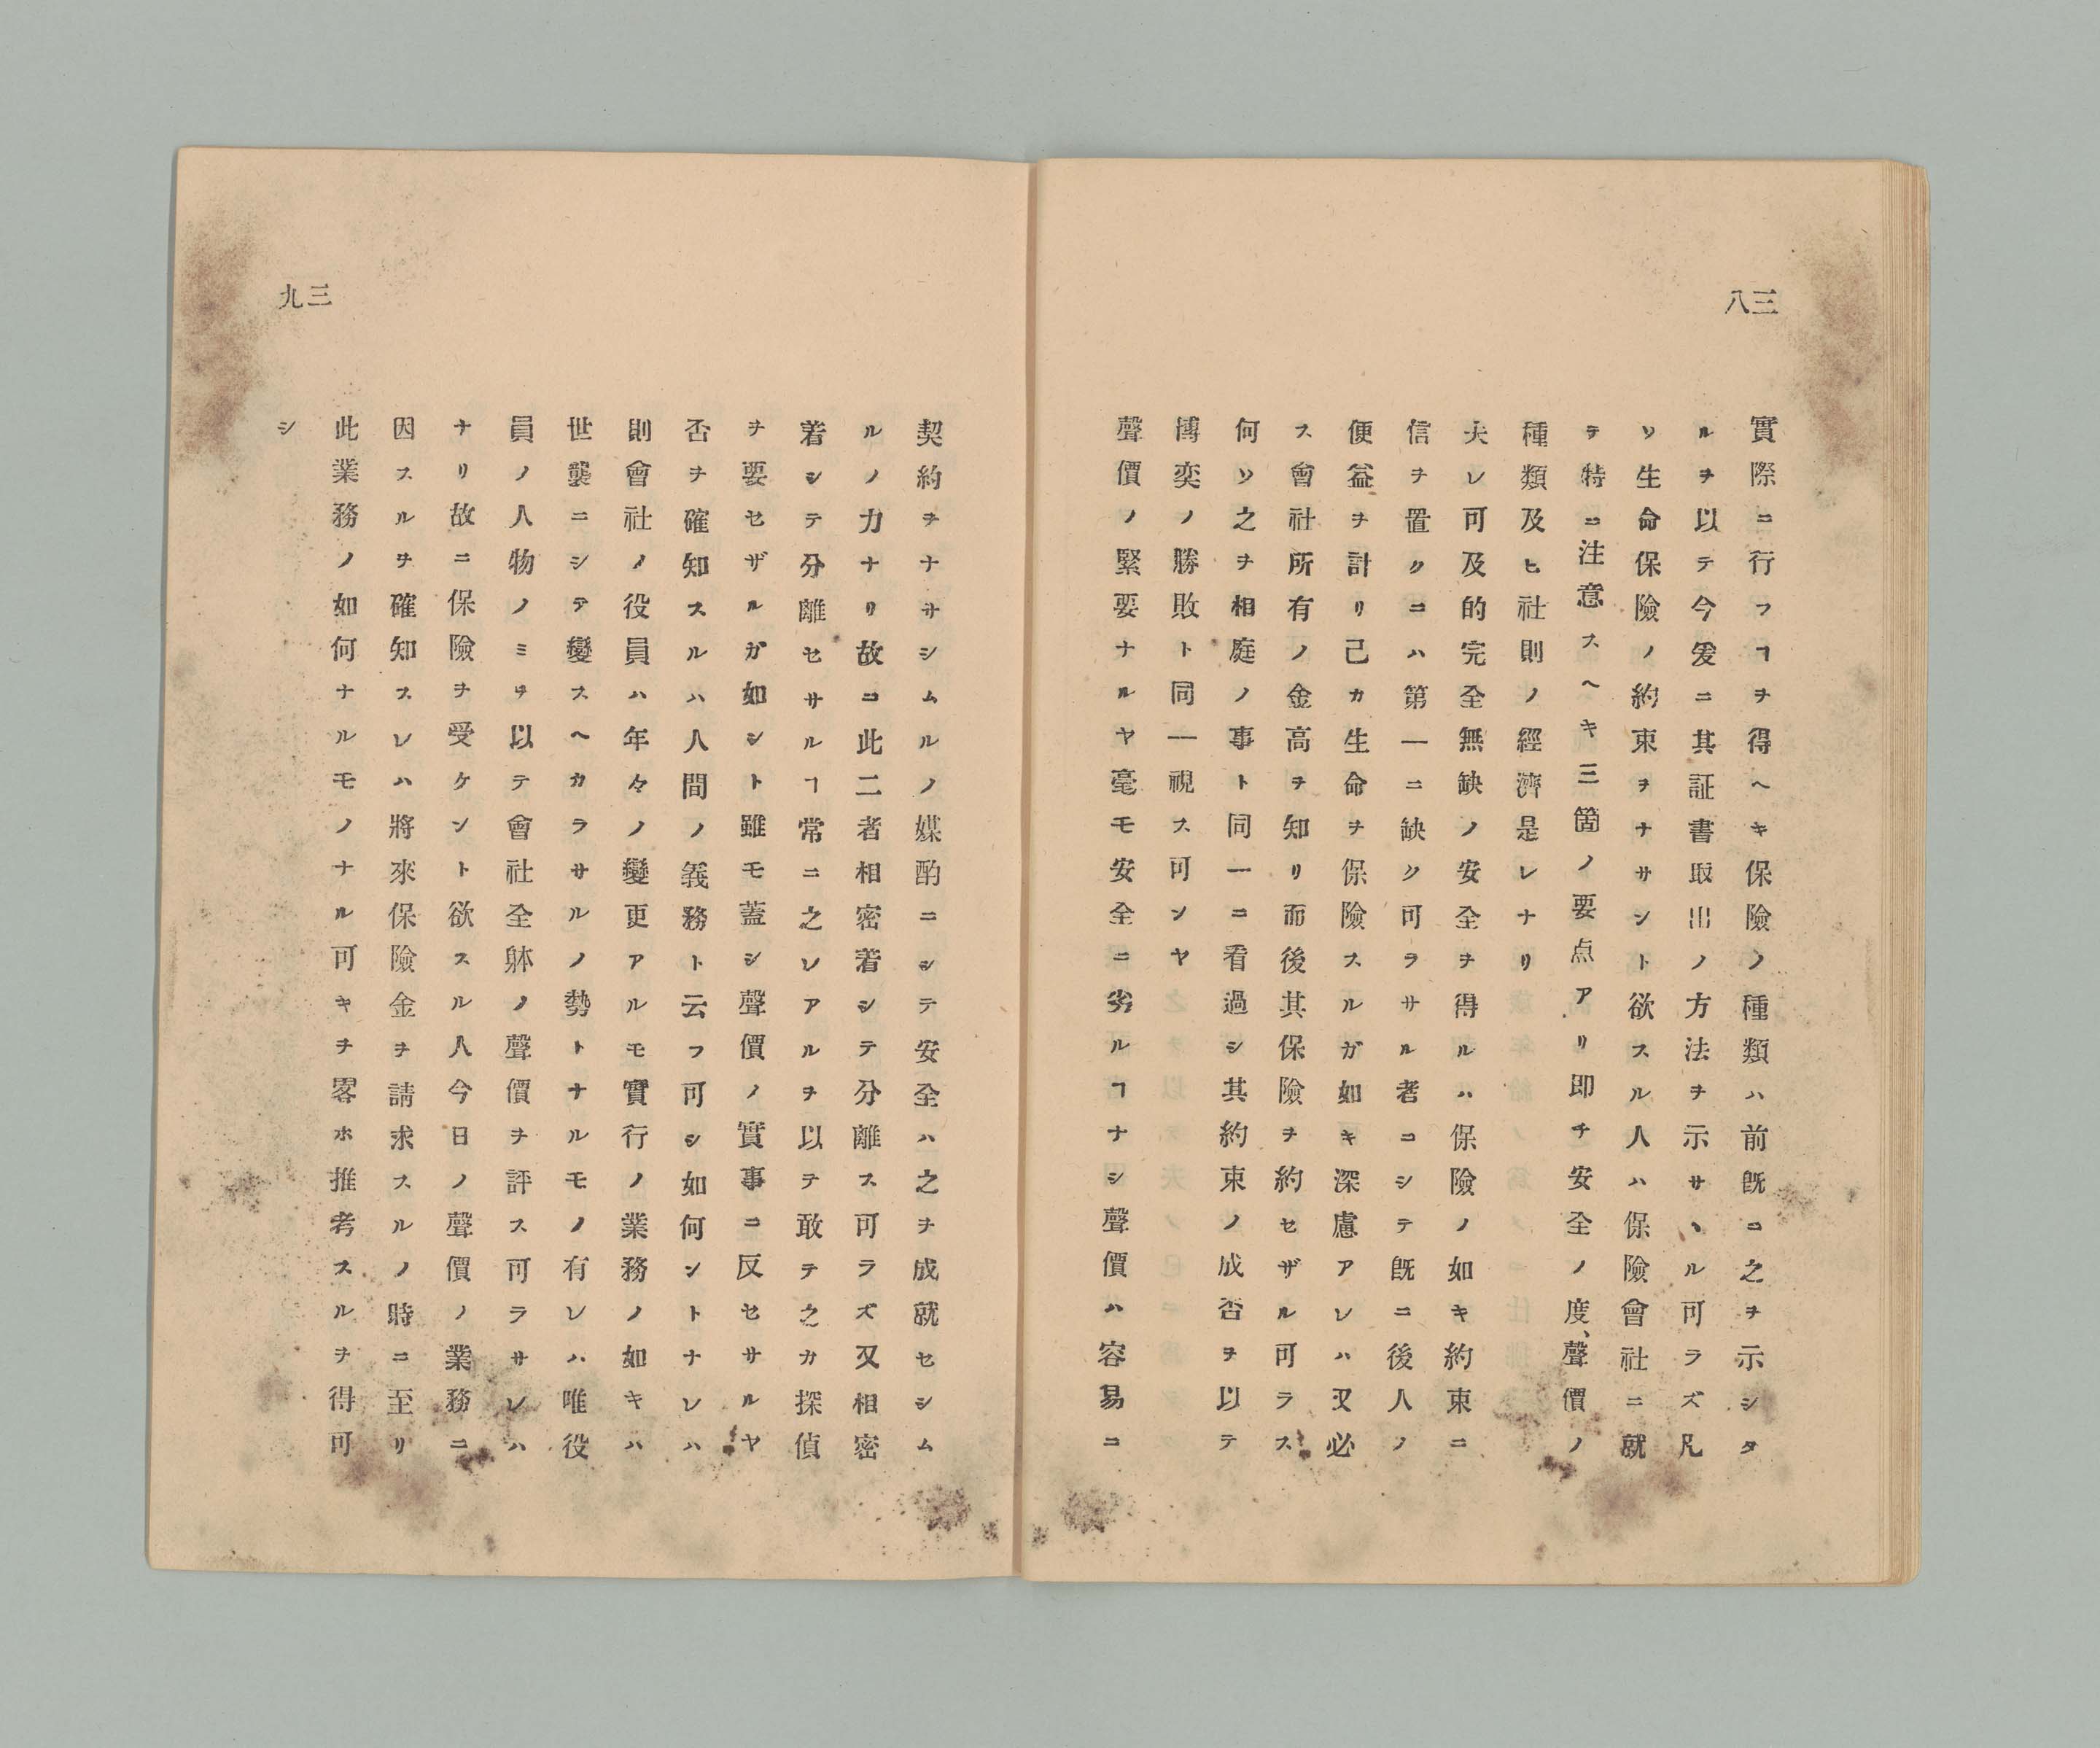 三八
實際ニ行フヿヲ得ヘキ保險ノ種類ハ前既ニ之ヲ示シタ
ルヲ以テ今爰ニ其証書取出ノ方法ヲ示サヽル可ラズ凡
ソ生命保險ノ約束ヲナサント欲スル人ハ保險會社ニ就
テ特ニ注意スヘキ三箇ノ要点アリ即チ安全ノ度、聲價ノ
種類及ヒ社則ノ經濟是レナリ
夫レ可及的完全無缺ノ安全ヲ得ルハ保險ノ如キ約束ニ
信ヲ置クニハ第一ニ缺ク可ラサル者ニシテ既ニ後人ノ
便益ヲ計リ己カ生命ヲ保險スルガ如キ深慮アレハ又必
ス會社所有ノ金高ヲ知リ而後其保險ヲ約セザル可ラス
何ソ之ヲ相庭ノ事ト同一ニ看過シ其約束ノ成否ヲ以テ
博奕ノ勝敗ト同一視ス可ンヤ
聲價ノ緊要ナルヤ毫モ安全ニ劣ルヿナシ聲價ハ容易ニ
三九
契約ヲナサシムルノ媒酌ニシテ安全ハ之ヲ成就セシム
ルノ力ナリ故ニ此二者相密着シテ分離ス可ラズ又相密
着シテ分離セサルヿ常ニ之レアルヲ以テ敢テ之カ探偵
ヲ要セザルガ如シト雖モ蓋シ聲價ノ實事ニ反セサルヤ
否ヲ確知スルハ人間ノ義務ト云フ可シ如何ントナレハ
則會社ノ役員ハ年々ノ變更アルモ實行ノ業務ノ如キハ
世襲ニシテ變スヘカラサルノ勢トナルモノ有レハ唯役
員ノ人物ノミヲ以テ會社全躰ノ聲價ヲ評ス可ラサレハ
ナリ故ニ保險ヲ受ケント欲スル人今日ノ聲價ノ業務ニ
因スルヲ確知スレハ將來保險金ヲ請求スルノ時ニ至リ
此業務ノ如何ナルモノナル可キヲ畧ホ推考スルヲ得可
シ